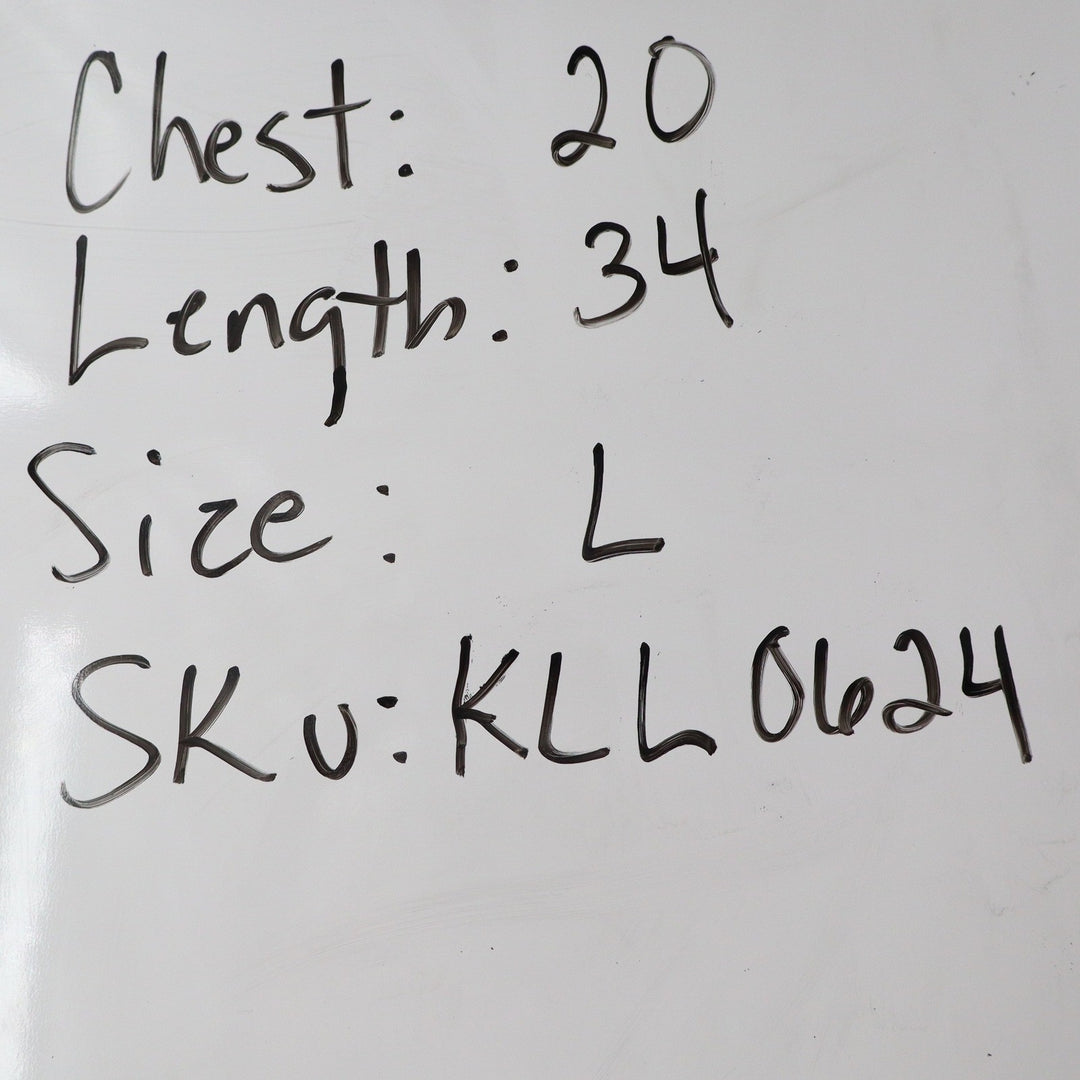 Chest: 20
Length: 34
Size: L
SKU: KLL0624